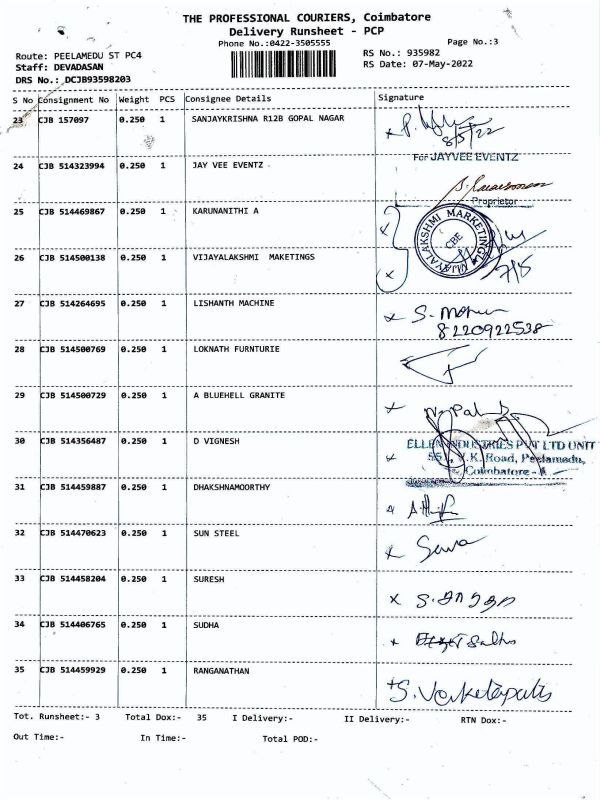 THE PROFESSIONAL COURIERS, Coimbatore
Delivery Runsheet - PCP
Phone No.:0422-3505555
Page No.:3
Route: PEELAMEDU ST PC4
Staff: DEVADASAN
DRS No.: DCJB93598203
RS No.: 935982
RS Date: 07-May-2022
S No Consignment No Weight PCS Consignee Details Signature
23 CJB 157097 0.250 1 SANJAYKRISHNA R12B GOPAL NAGAR
8/5/22
For JAYVEE EVENTZ
24 CJB 514323994 0.250 1 JAY VEE EVENTZ
Proprietor
25 CJB 514469867 0.250 1 KARUNANITHI A
VIJAYALAKSHMI MARKETING
CBE
26 CJB 514500138 0.250 1 VIJAYALAKSHMI MAKETINGS
7/5
27 CJB 514264695 0.250 1 LISHANTH MACHINE
8220922538
28 CJB 514500769 0.250 1 LOKNATH FURNTURIE
29 CJB 514500729 0.250 1 A BLUEHELL GRANITE
30 CJB 514356487 0.250 1 D VIGNESH
ELLEN INDUSTRIES PVT LTD UNIT
V.K. Road, Peelamedu,
Coimbatore - 4
31 CJB 514459887 0.250 1 DHAKSHNAMOORTHY
32 CJB 514470623 0.250 1 SUN STEEL
33 CJB 514458204 0.250 1 SURESH
34 CJB 514406765 0.250 1 SUDHA
35 CJB 514459929 0.250 1 RANGANATHAN
Tot. Runsheet:- 3 Total Dox:- 35 I Delivery:- II Delivery:- RTN Dox:-
Out Time:- In Time:- Total POD:-